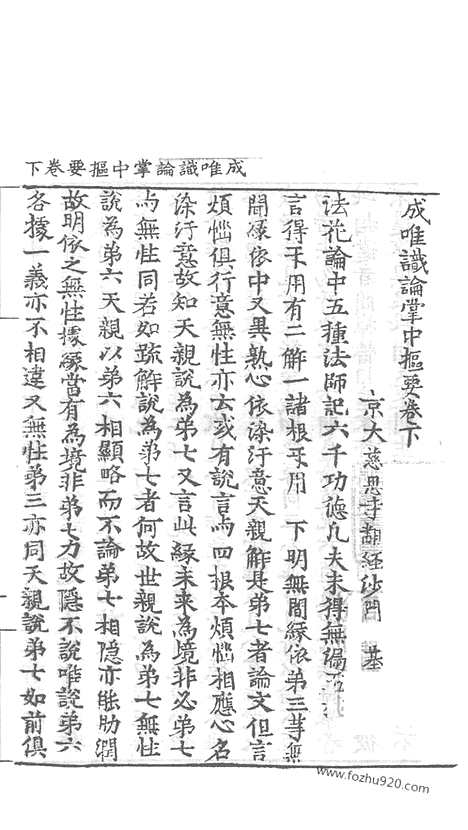 成唯識論掌中樞要卷下
成唯識論掌中樞要卷下
京大慈恩寺翻經沙門 基
法花論中五種法師記六千功德凡夫未得無漏
言得㸦用有二解一諸根㸦用 下明無間緣依第三䓁無
間緣依中又異熟心依染汙意天親解是第七者論文但言
煩惱俱行意無性亦云或有說言与四根本煩惱相應心名
染汙意故知天親說為第七又言此緣未來為境非必第七
与無性同若如䟽解說為第七者何故世親說為第七無性
說為第六天親以第六相顯略而不論第七相隱亦能助潤
故明依之無性據緣當有為境非第七力故隱不說唯談第六
各據一義亦不相違又無性第三亦同天親說第七如前俱
www.fozhu920.com